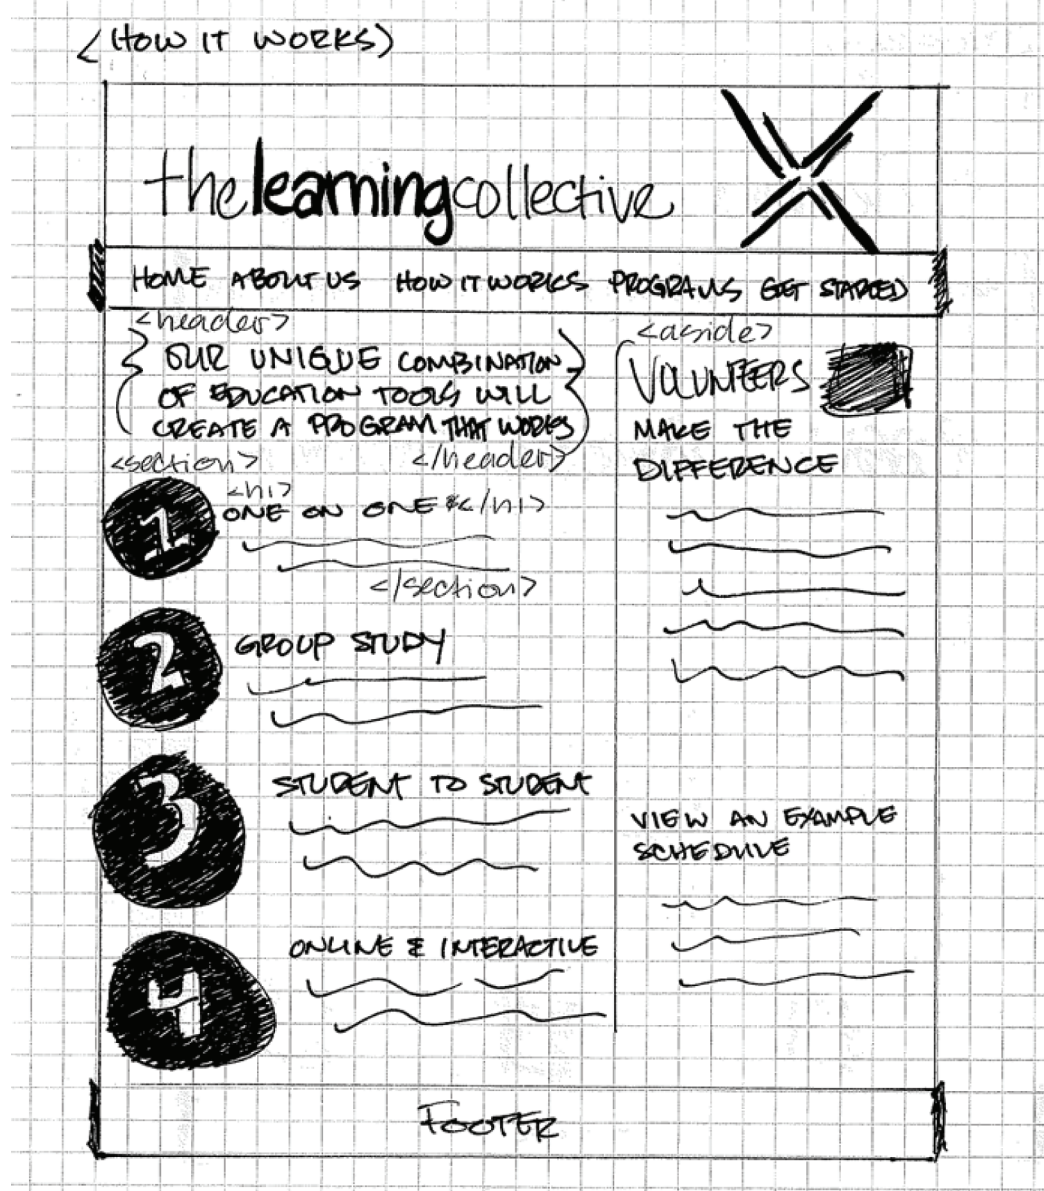 <HOW IT WORKS>
thelearningcollective
HOME ABOUT US HOW IT WORKS PROGRAMS GET STARTED
<header>
OUR UNIQUE COMBINATION
OF EDUCATION TOOLS WILL
CREATE A PROGRAM THAT WORKS
</header>
<section>
1
<h1>
ONE ON ONE </h1>
</section>
2
GROUP STUDY
3
STUDENT TO STUDENT
4
ONLINE & INTERACTIVE
<aside>
VOLUNTEERS
MAKE THE
DIFFERENCE
VIEW AN EXAMPLE
SCHEDULE
FOOTER